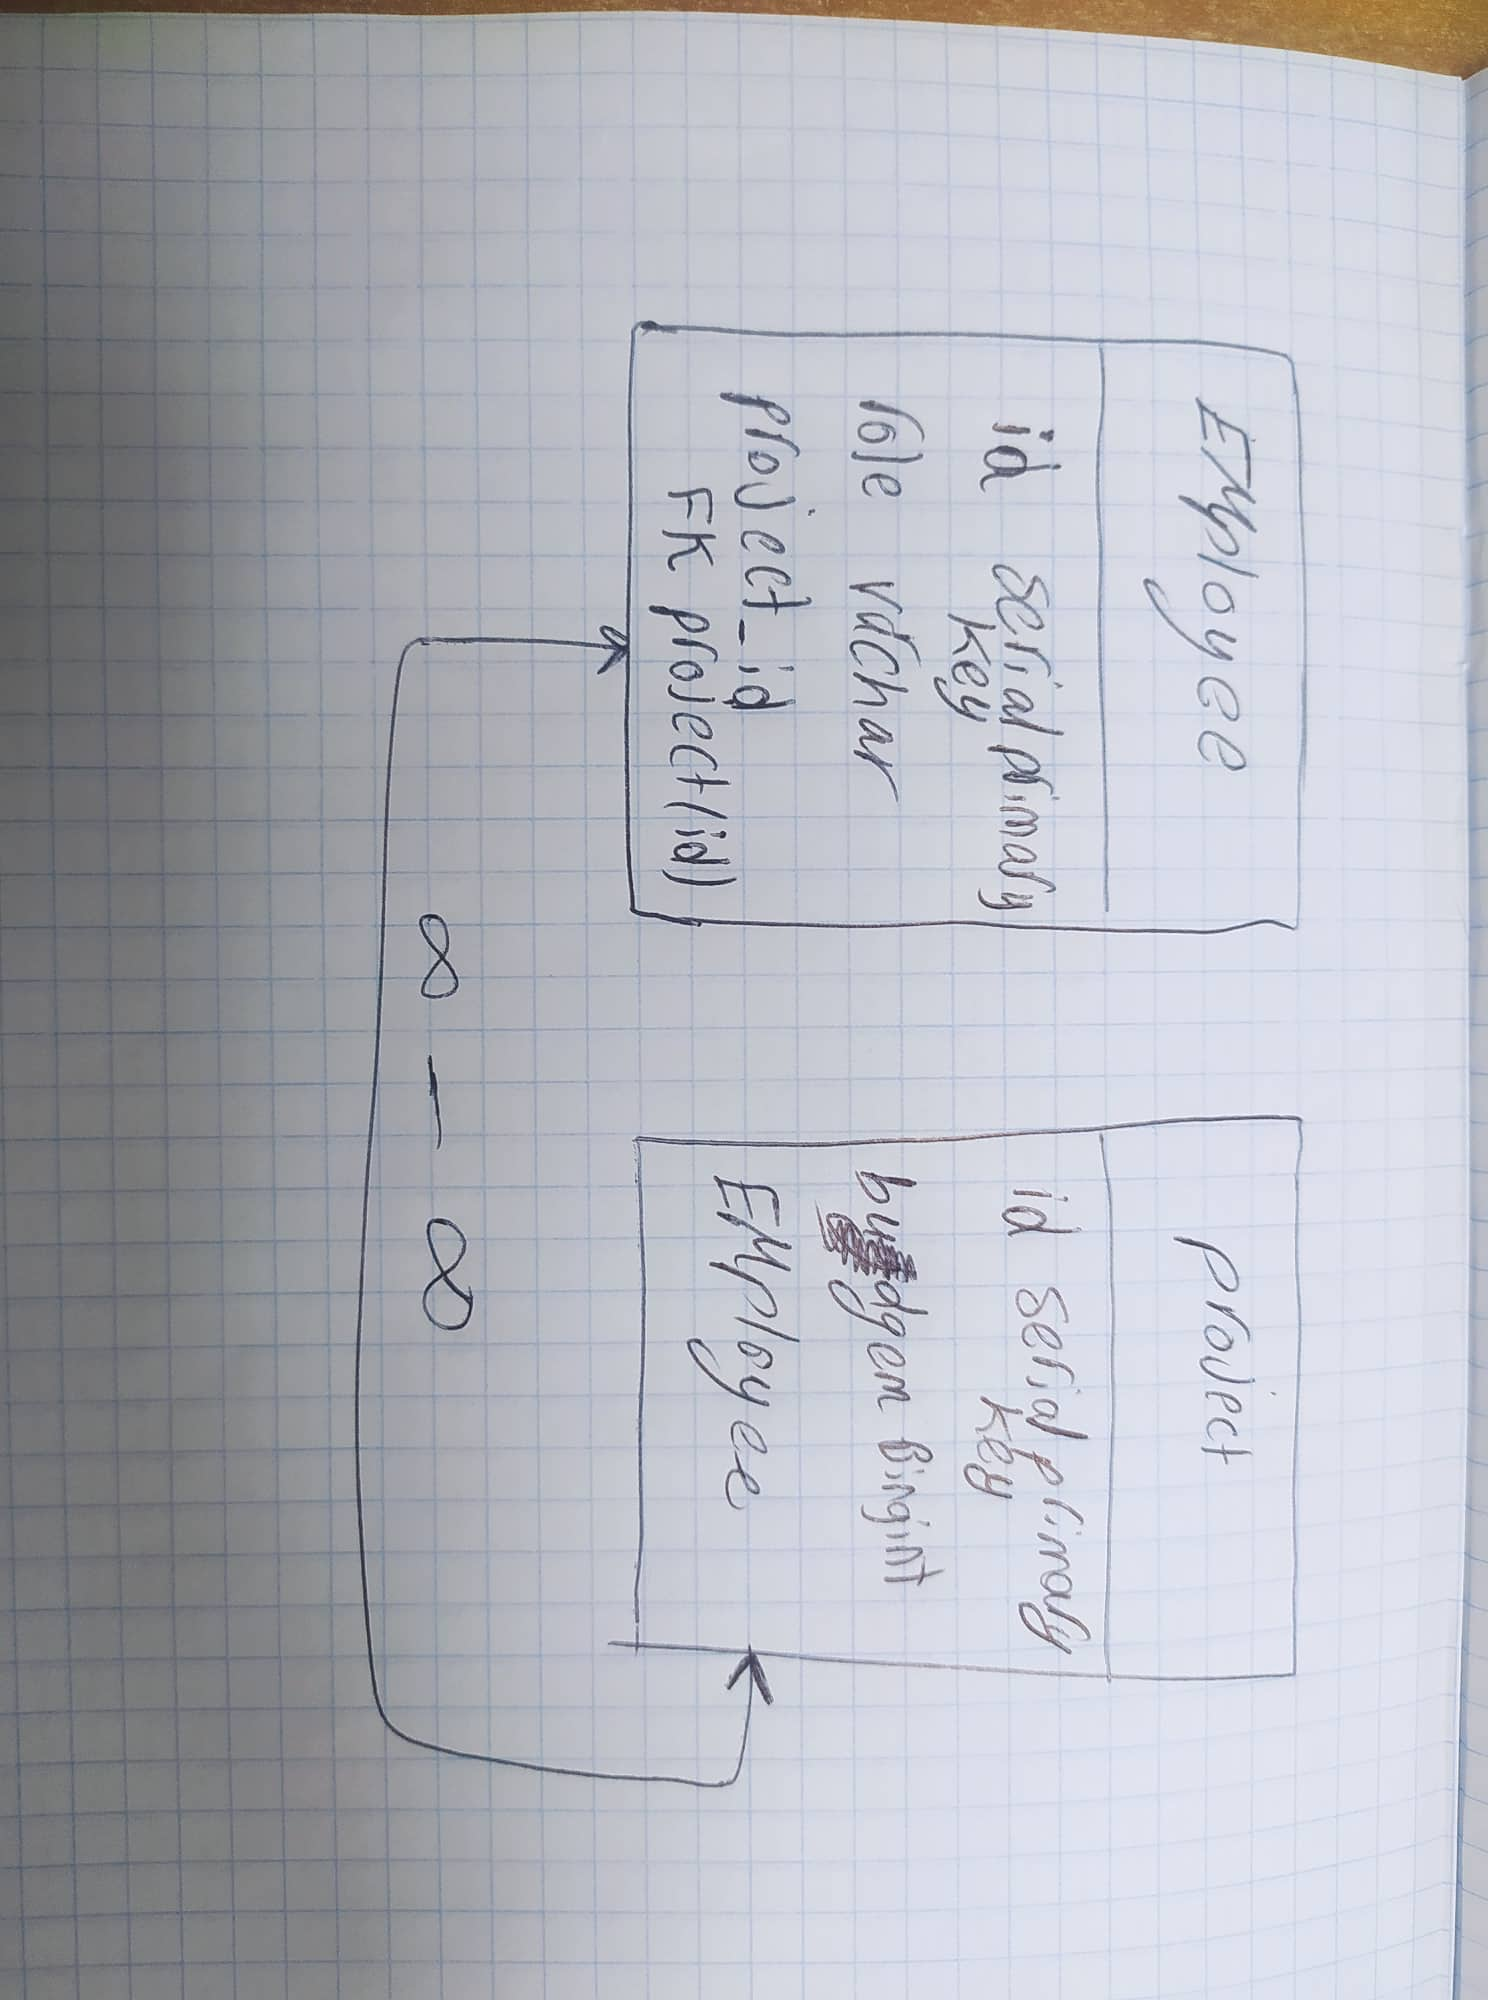 Employee
id serial primary
key
role vdchar
project_id
FK project(id)
project
id serial primary
key
budgem bingint
Employee
∞ — ∞